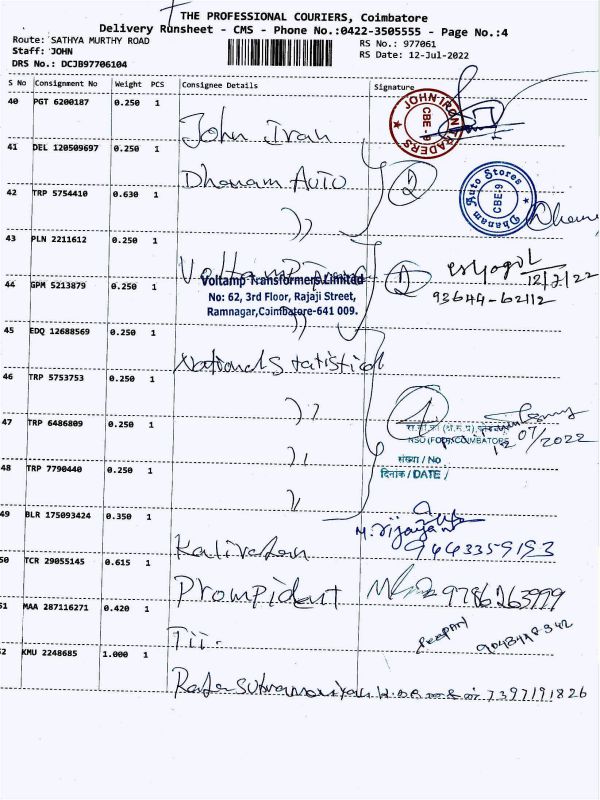 THE PROFESSIONAL COURIERS, Coimbatore
Delivery Runsheet - CMS - Phone No.:0422-3505555 - Page No.:4
Route: SATHYA MURTHY ROAD
RS No.: 977061
Staff: JOHN
RS Date: 12-Jul-2022
DRS No.: DCJB97706104
S No Consignment No Weight PCS Consignee Details Signature
40 PGT 6200187 0.250 1 John Iran
JOHN IRON TRADERS CBE-9
41 DEL 120509697 0.250 1 Dhanam Auto
42 TRP 5754410 0.630 1 ))
Dhanam Auto Stores CBE-9
43 PLN 2211612 0.250 1 Voltamp
12/7/22
44 GPM 5213879 0.250 1 ))
Voltamp Transformers Limited
No: 62, 3rd Floor, Rajaji Street,
Ramnagar,Coimbatore-641 009.
93644-62112
45 EDQ 12688569 0.250 1 National Statistical
46 TRP 5753753 0.250 1 ))
47 TRP 6486809 0.250 1 ))
12/07/2022
संख्या / No
दिनांक / DATE /
48 TRP 7790440 0.250 1 ))
49 BLR 175093424 0.350 1
M. Vijayan
9443359193
50 TCR 29055145 0.615 1 Prompident
9786263999
51 MAA 287116271 0.420 1 TII-
DEEPAN
52 KMU 2248685 1.000 1
7397191826